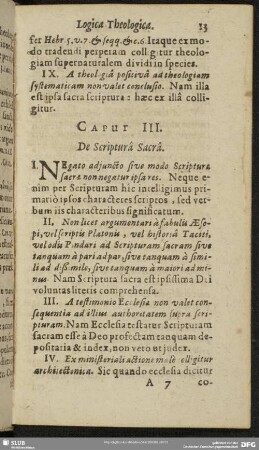 Logica Theologica. 13
fert Hebr. 5. v. 7. & seqq. & c. 6. Itaque ex mo-
do tradendi perperam colligitur theolo-
giam supernaturalem dividi in species.
IX. A theologiâ positivâ ad theologiam
systematicam non valet conclusio. Nam illa
est ipsa sacra scriptura: hæc ex illâ colli-
gitur.
CAPUT III.
De Scripturâ Sacrâ.
I. NEgato adjuncto sive modo Scripturæ
sacræ non negatur ipsa res. Neque e-
nim per Scripturam hic intelligimus pri-
mariò ipsos characteres scriptos, sed ver-
bum iis characteribus significatum.
II. Non licet argumentari à fabulis Æso-
pi, vel scriptis Platonis, vel historiâ Taciti,
vel odis Pindari ad Scripturam sacram sive
tanquam à pari ad par, sive tanquam à simi-
li ad dissimile, sive tanquam à majori ad mi-
nus Nam Scriptura sacra est ipsissima Dei
voluntas literis comprehensa.
III. A testimonio Ecclesiæ non valet con-
sequentia ad illius authoritatem supra scri-
pturam. Nam Ecclesia testatur Scripturam
sacram esse à Deo profectam tanquam de-
positaria & index, non vero ut judex.
IV. Ex ministeriali actione malè colligitur
architectonica. Sic quando ecclesia dicitur
A 7 co-
SLUB
DFG